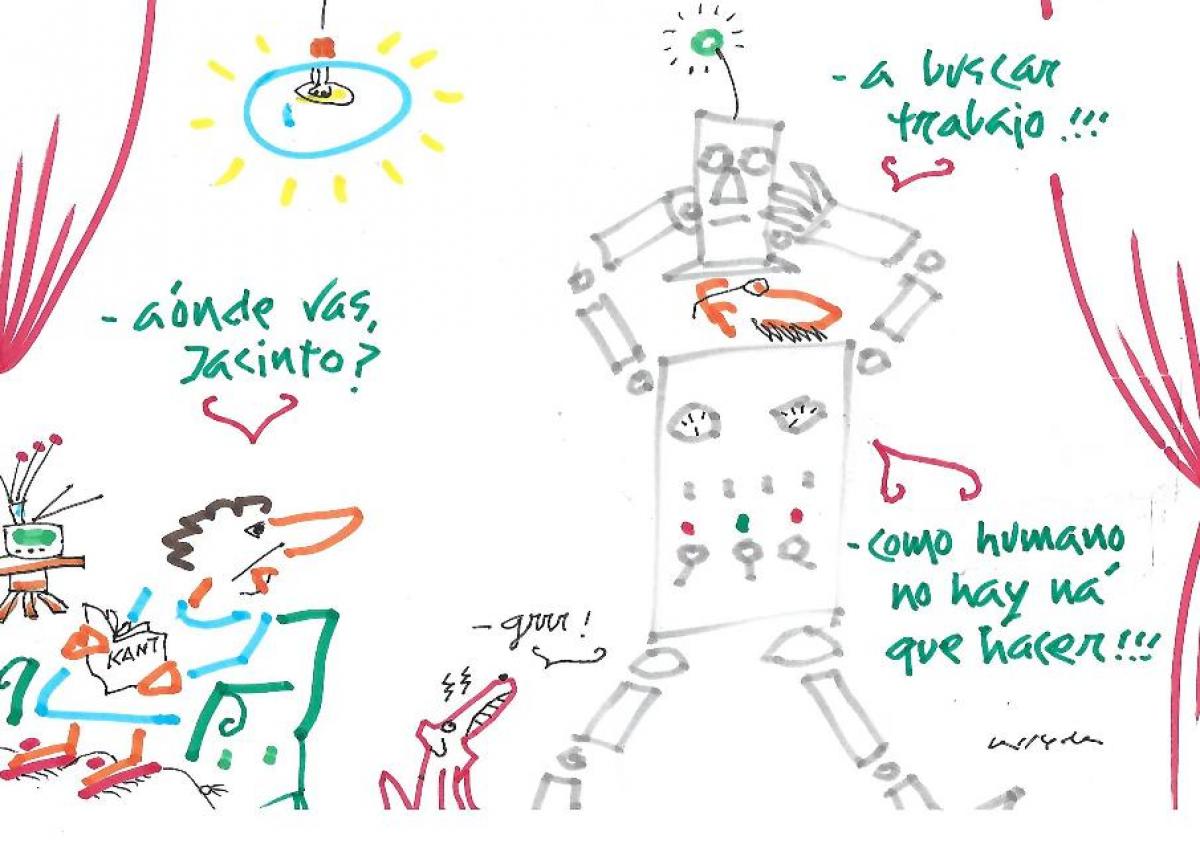 - aónde vas,
Jacinto?
- a buscar
trabajo!!!
- como humano
no hay ná
que hacer!!!
- grrr!
KANT